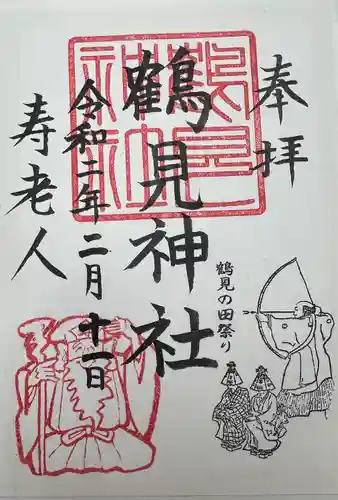 奉拝
鶴見の田祭り
鶴見神社
令和二年二月十一日
寿老人
鶴見神社